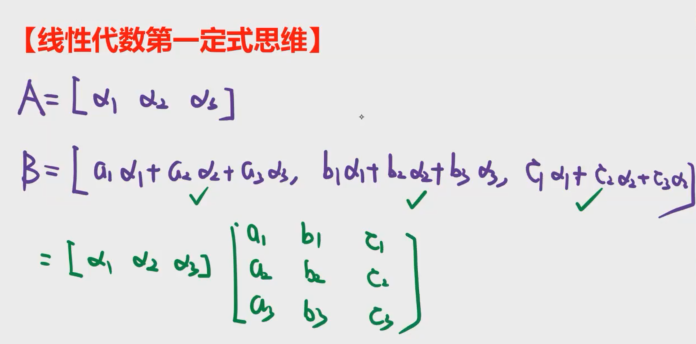 【线性代数第一定式思维】
A=[α₁ α₂ α₃]
B=[a₁α₁+a₂α₂+a₃α₃, b₁α₁+b₂α₂+b₃α₃, c₁α₁+c₂α₂+c₃α₃]
=[α₁ α₂ α₃] [a₁ b₁ c₁
a₂ b₂ c₂
a₃ b₃ c₃]